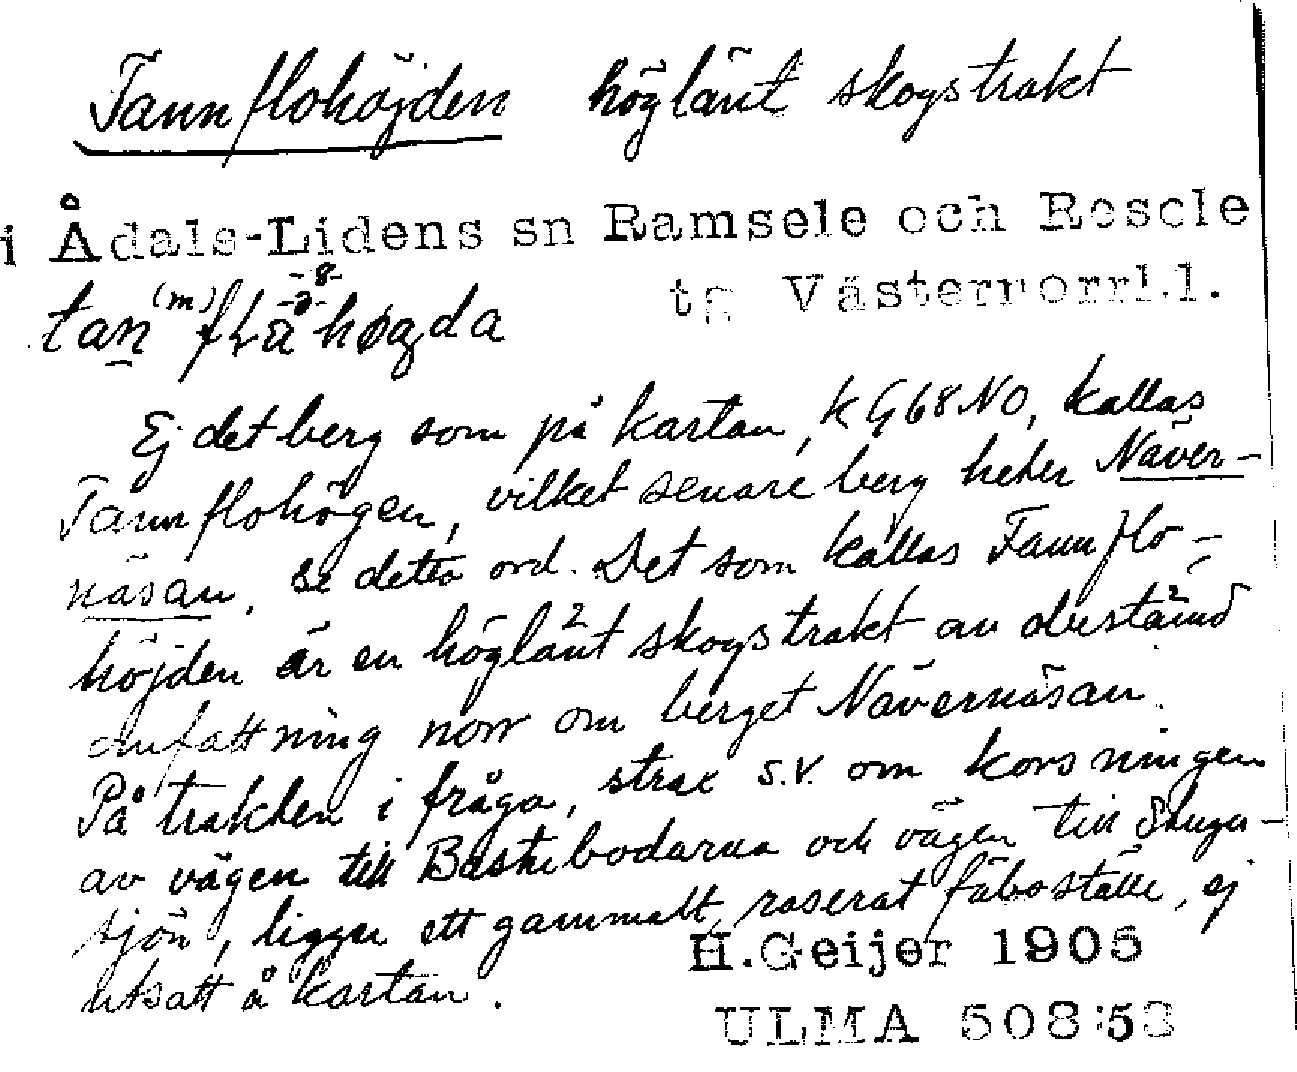 Tannflohöjden höglänt skogstrakt
i Ådals-Lidens sn Ramsele och Resele
tg Västernorrl.l.
Ej det berg som på kartan, k G68NO, kallas
Tannflohögen, vilket senare berg heter Näver-
näsan, se detta ord. Det som kallas Tannflo-
höjden är en höglänt skogstrakt av obestämd
omfattning norr om berget Nävernäsan.
På trakten i fråga, strax s.v. om korsningen
av vägen till Bastubodarna och vägen till
sjön, ligger ett gammalt, raserat fäboställe, ej
utsatt å kartan.
H.Geijer 1905
ULMA 508:58